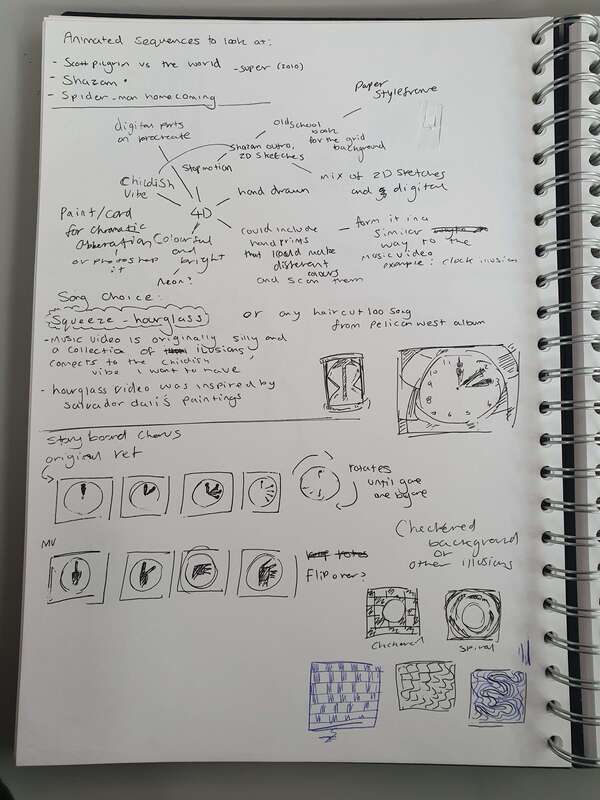 Animated Sequences to look at:
- Scott pilgrim vs the world - super (2010)
- Shazam
- Spider-man homecoming
digital parts
on procreate
old school
book
for the grid
background
Paper
Styleframe
Stop motion
Shazam outro,
2D sketches
mix of 2D sketches
and digital
Childish
Vibe
hand drawn
4D
Paint/card
for chromatic
abberation
or photoshop
it
Colourful
and
bright
Neon?
could include
hand prints
that could make
different
colours
and scan them
- form it in a
similar
way to the
music video
example: clock illusion
Song Choice:
Squeeze - hourglass or any haircut 100 song
from pelican west album
- Music video is originally silly and
a collection of ilusions,
compets to the childish
vibe I want to have
- hourglass video was inspired by
Salvador dali's paintings
12
Storyboard Chorus
original ref
rotates
until gone
one by one
MV
Flip overs
Checkered
background
or
other illusions
Checkered
Spiral